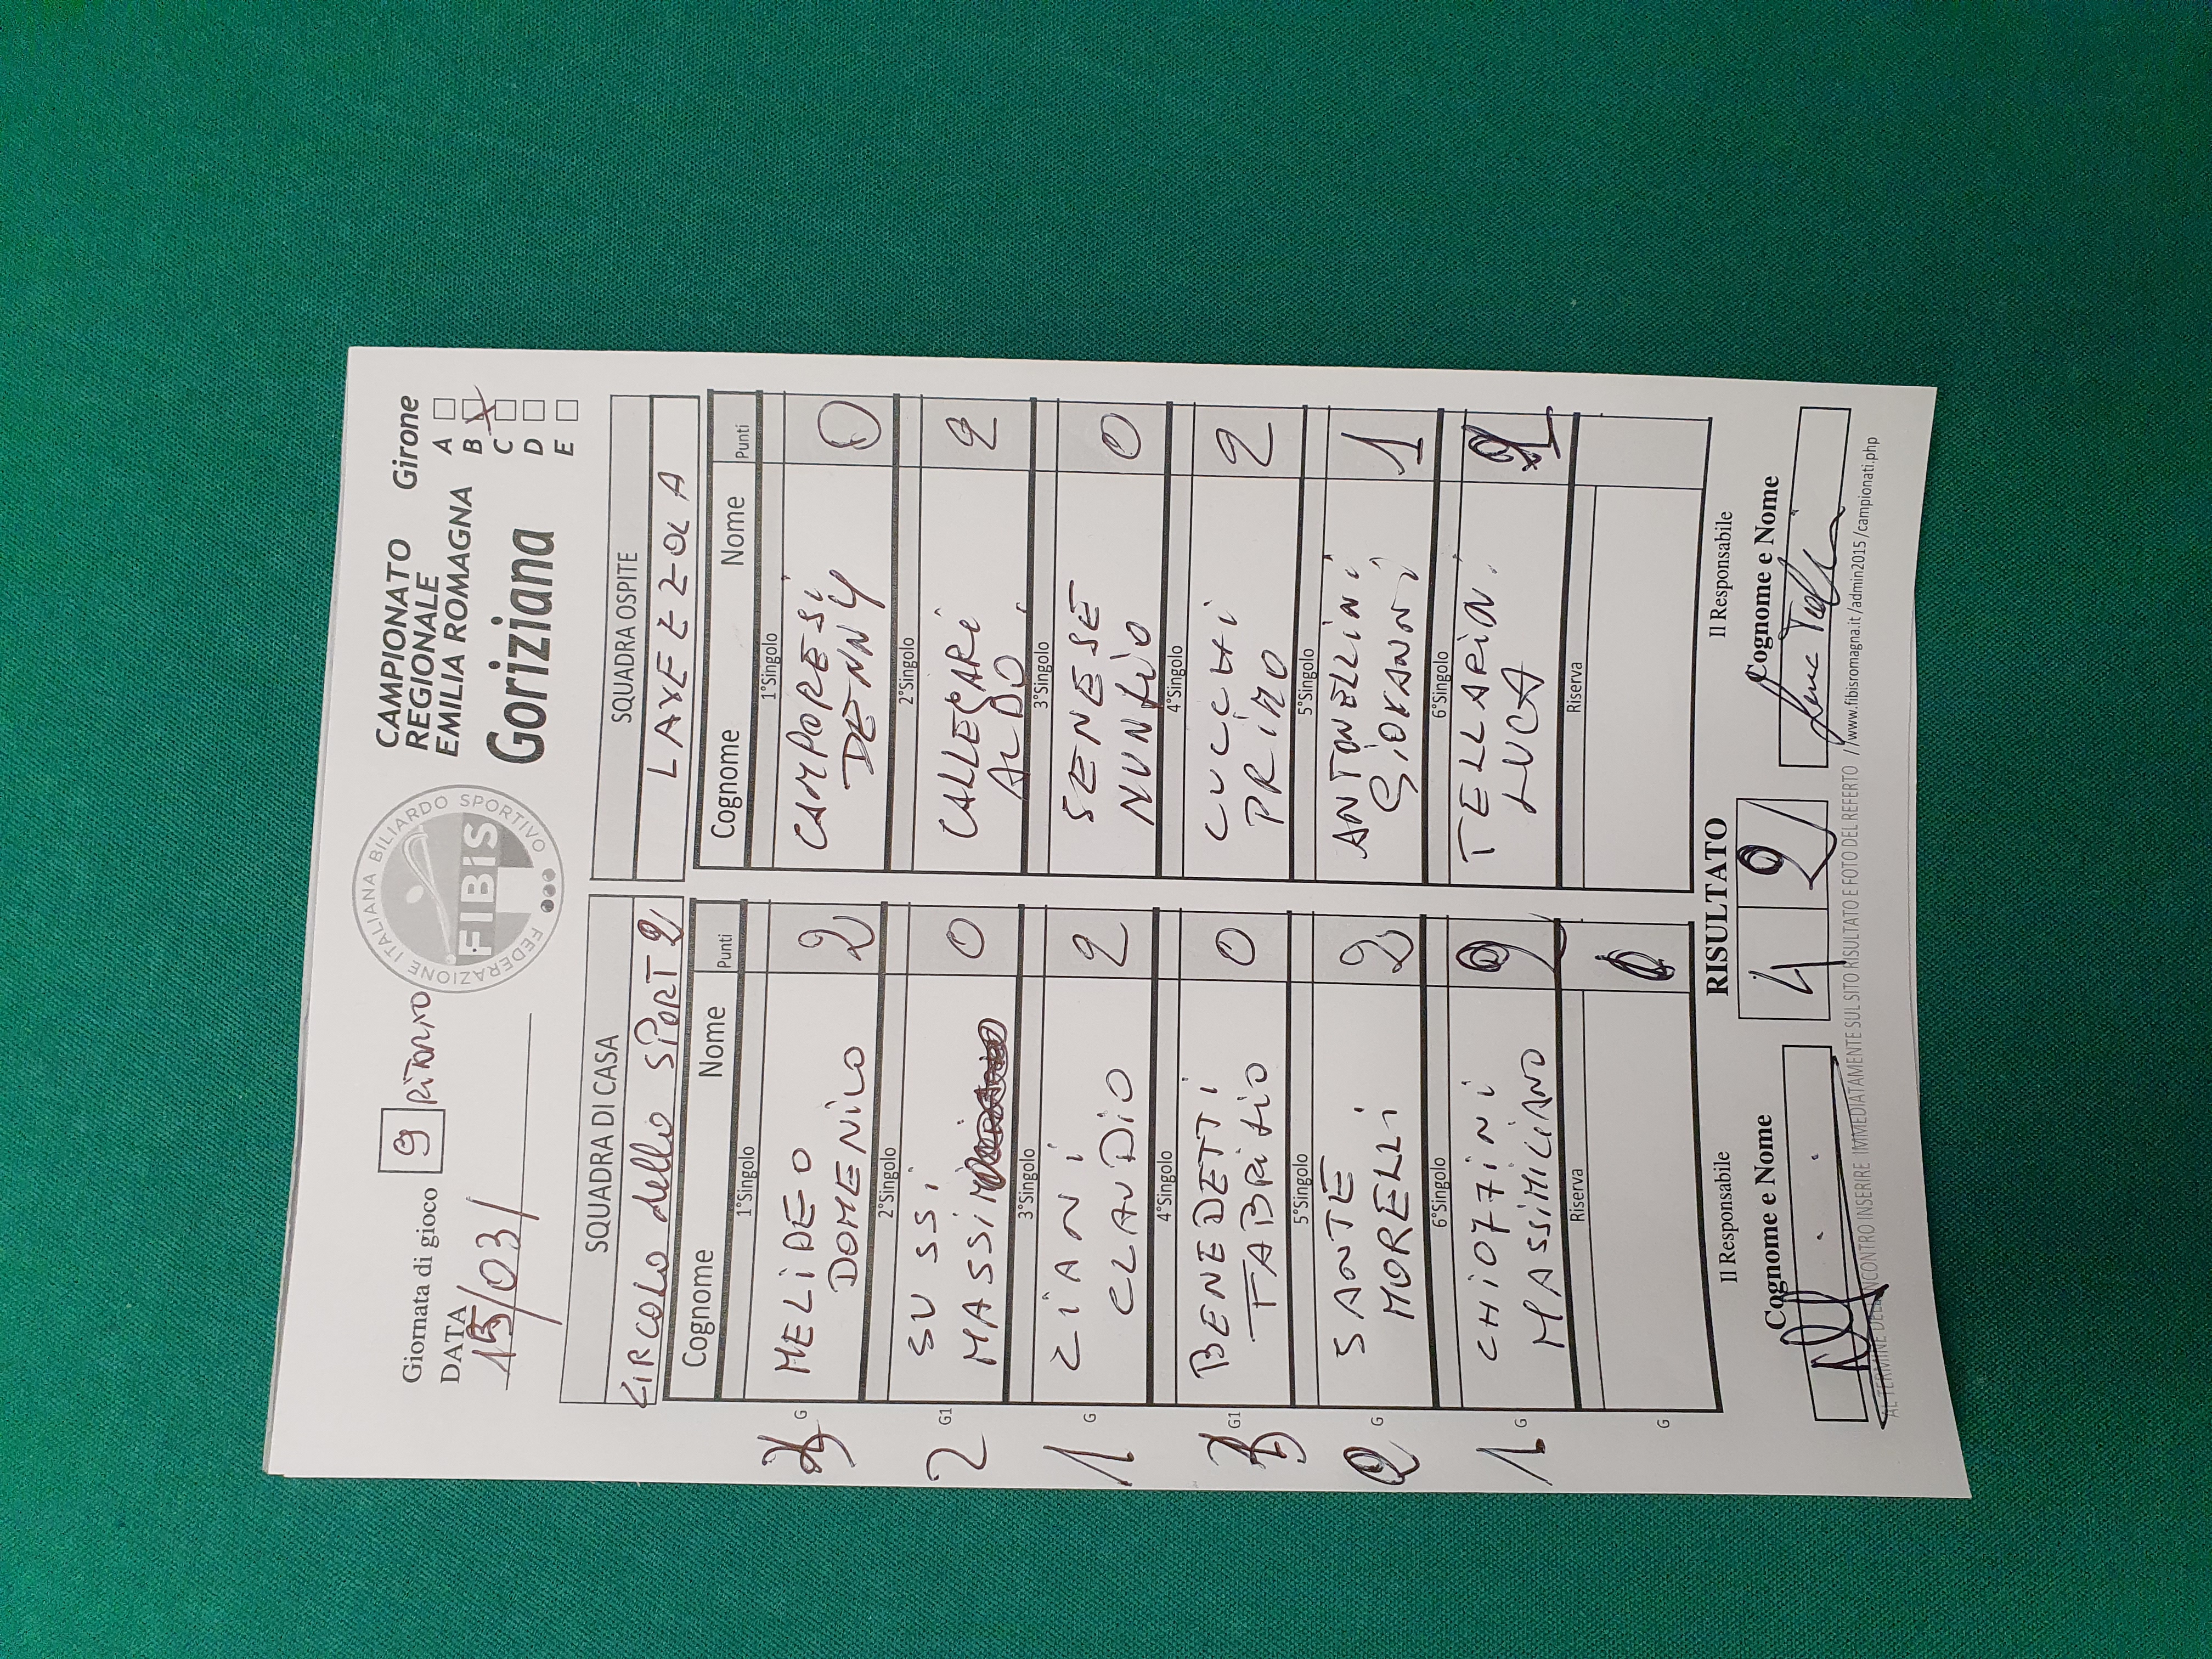 Giornata di gioco 9 RITORNO
DATA 15/03/
FEDERAZIONE ITALIANA BILIARDO SPORTIVO
FIBiS
CAMPIONATO
REGIONALE
EMILIA ROMAGNA
Goriziana
Girone
A
B
C
D
E
SQUADRA DI CASA
CIRCOLO dello SPORT 2
Cognome Nome Punti
1°Singolo
G MELIDEO 2
DOMENICO
2°Singolo
2 G1 SUSSI 0
MASSIMO
3°Singolo
1 G CIANI 2
CLAUDIO
4°Singolo
G1 BENEDETTI 0
FABRIZIO
5°Singolo
2 G SANTE 2
MORELLI
6°Singolo
1 G CHIOZZINI 2
MASSIMILIANO
Riserva
G
SQUADRA OSPITE
LAVEZZOLA
Cognome Nome Punti
1°Singolo
CAMPORESI 0
DENNY
2°Singolo
CALLEGARI 2
ALDO
3°Singolo
SENESE 0
NUNZIO
4°Singolo
CUCCHI 2
PRIMO
5°Singolo
ANTONELLINI 1
GIOVANNI
6°Singolo
TELLARINI
LUCA
Riserva
RISULTATO
4 2
Il Responsabile
Cognome e Nome
Il Responsabile
Cognome e Nome
AL TERMINE DELL'INCONTRO INSERIRE IMMEDIATAMENTE SUL SITO RISULTATO E FOTO DEL REFERTO //www.fibisromagna.it/admin2015/campionati.php